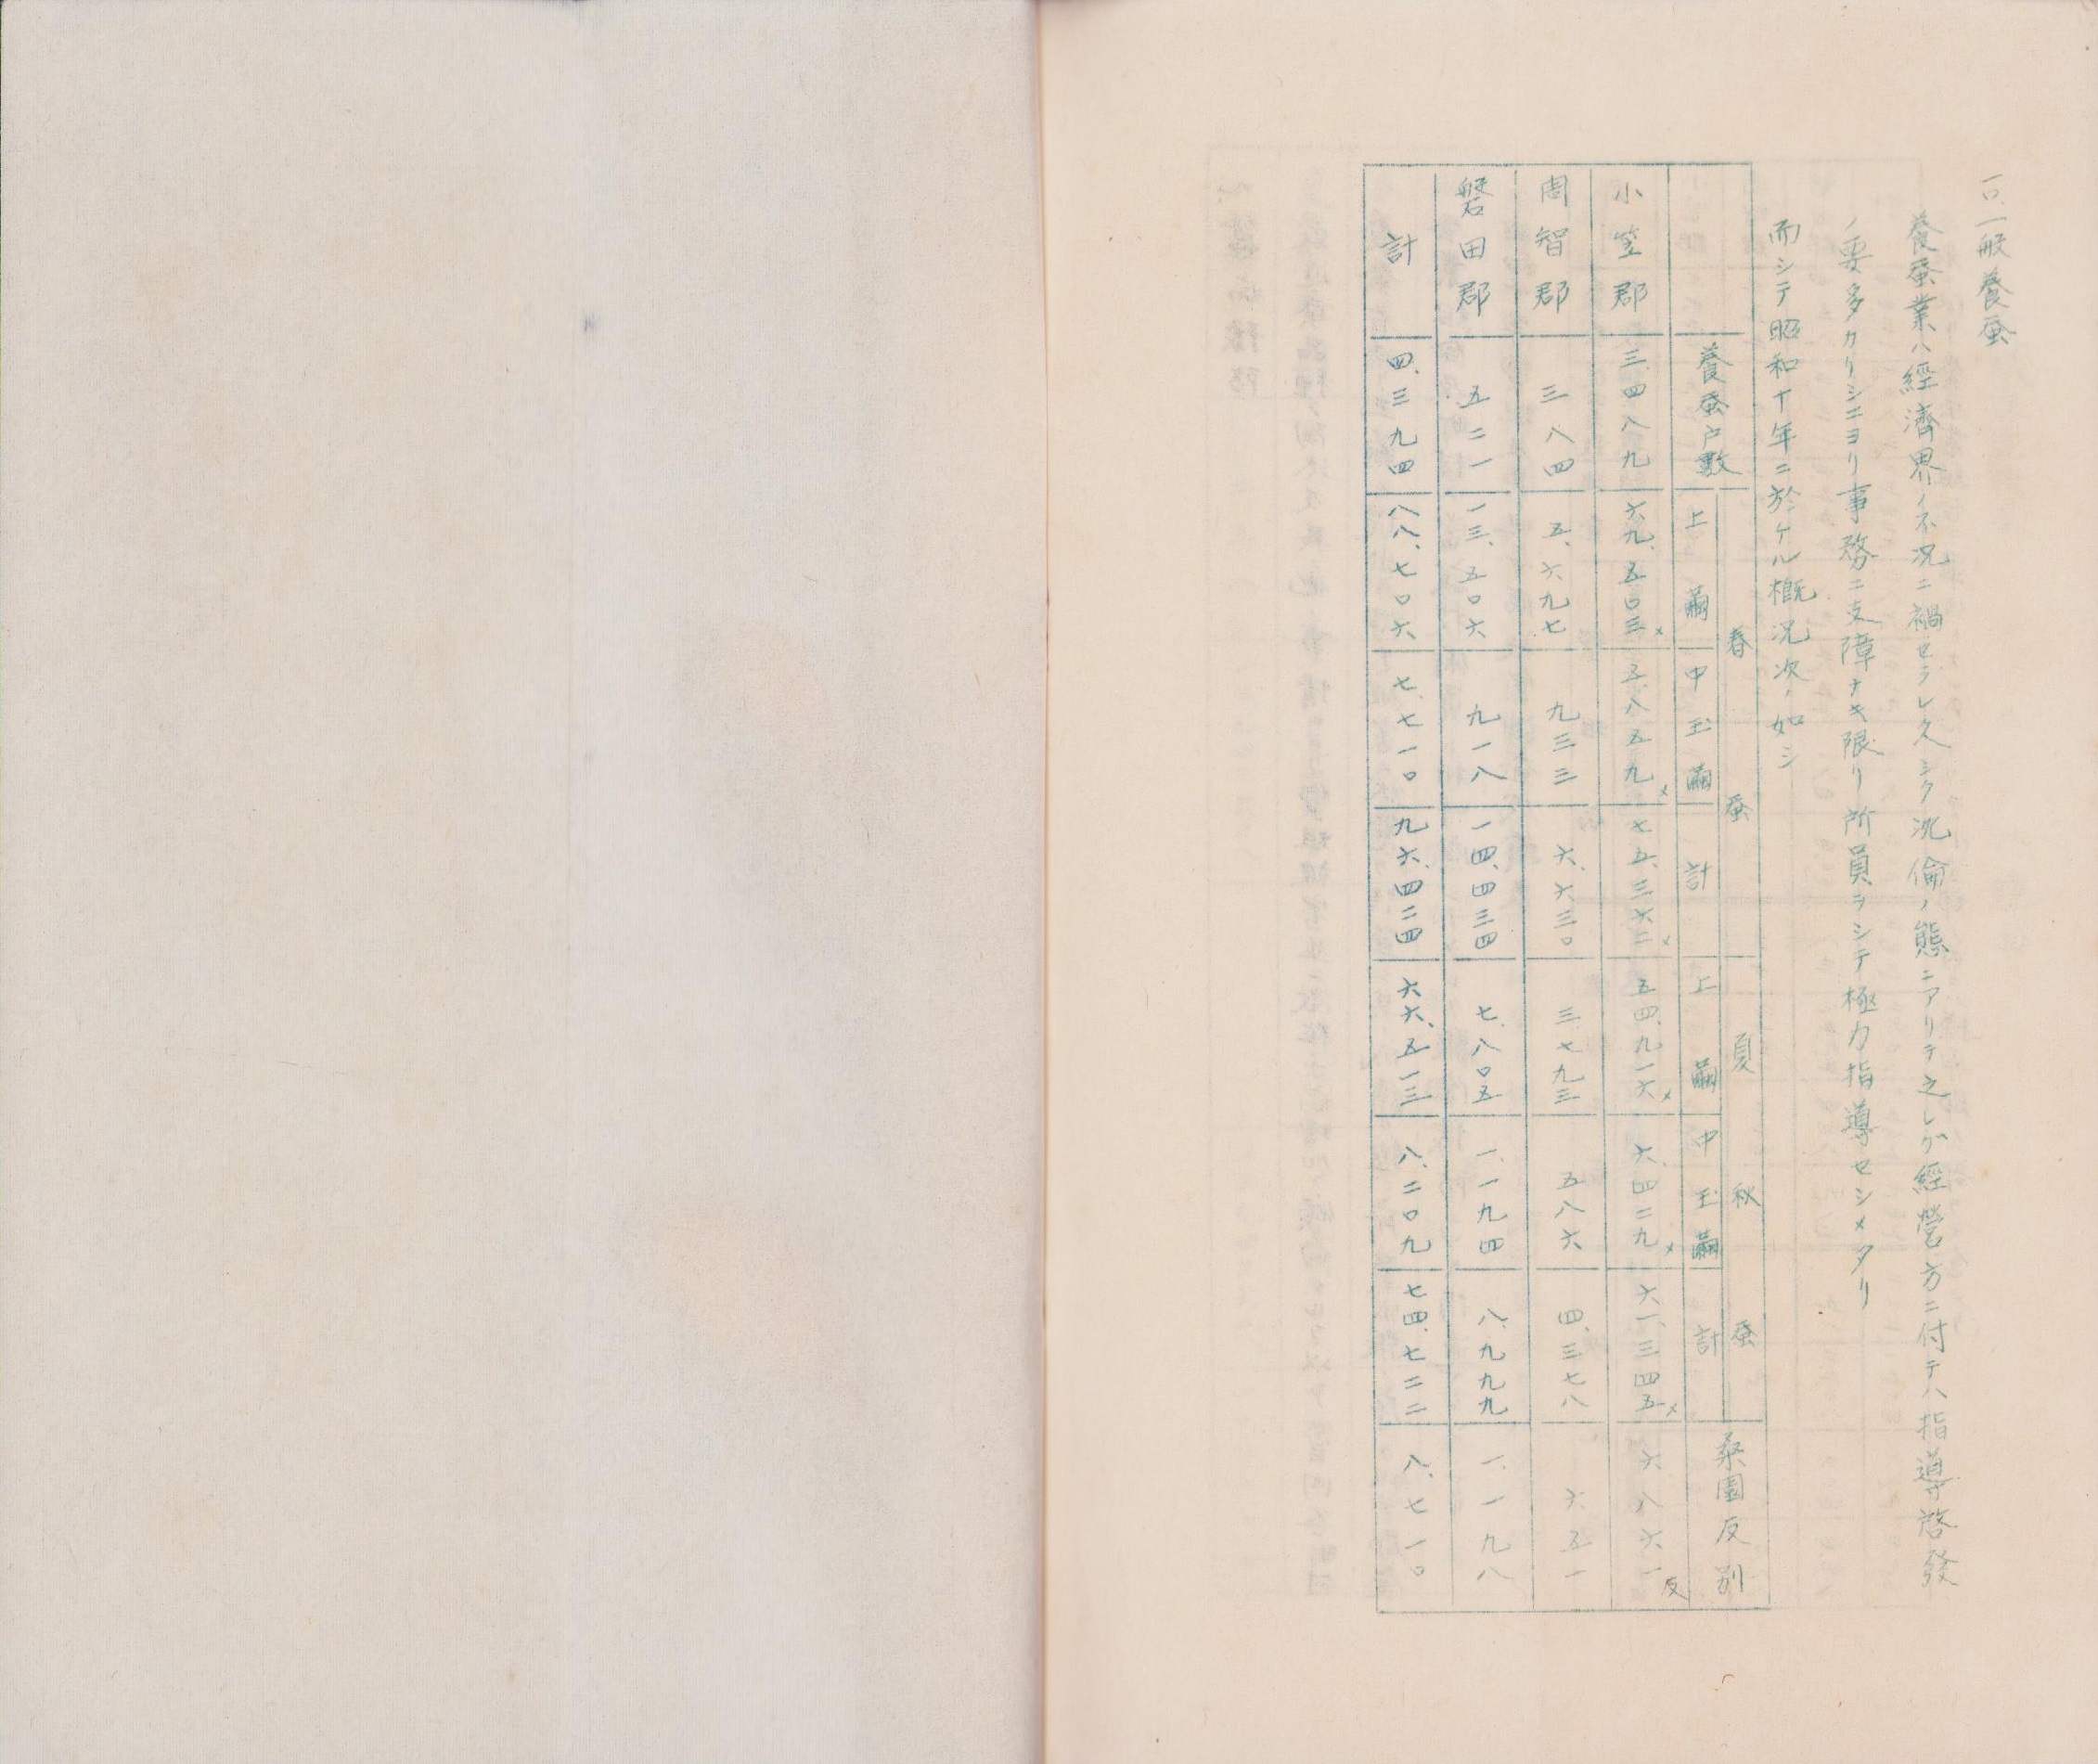 一〇、一般養蚕
養蚕業ハ經濟界ノ不況ニ禍セラレ久シク沈倫ノ態ニアリテ之レガ經營方ニ付テハ指導啓發
ノ要多カリシニヨリ事務ニ支障ナキ限リ所員ヲシテ極力指導セシメタリ
而シテ昭和十年ニ於ケル概況次ノ如シ
養蚕戸數 春蚕 夏秋蚕 桑園反別
上繭 中玉繭 計 上繭 中玉繭 計
小笠郡 三、四八九 六九、五〇三〆 五、八五九〆 七五、三六二〆 五四、九一六〆 六、四二九〆 六一、三四五〆 六八六一反
周智郡 三八四 五、六九七 九三三 六、六三〇 三、七九三 五八六 四、三七八 六五一
磐田郡 五二一 一三、五〇六 九一八 一四、四三四 七、八〇五 一、一九四 八、九九九 一、一九八
計 四、三九四 八八、七〇六 七、七一〇 九六、四二四 六六、五一三 八、二〇九 七四、七二二 八、七一〇